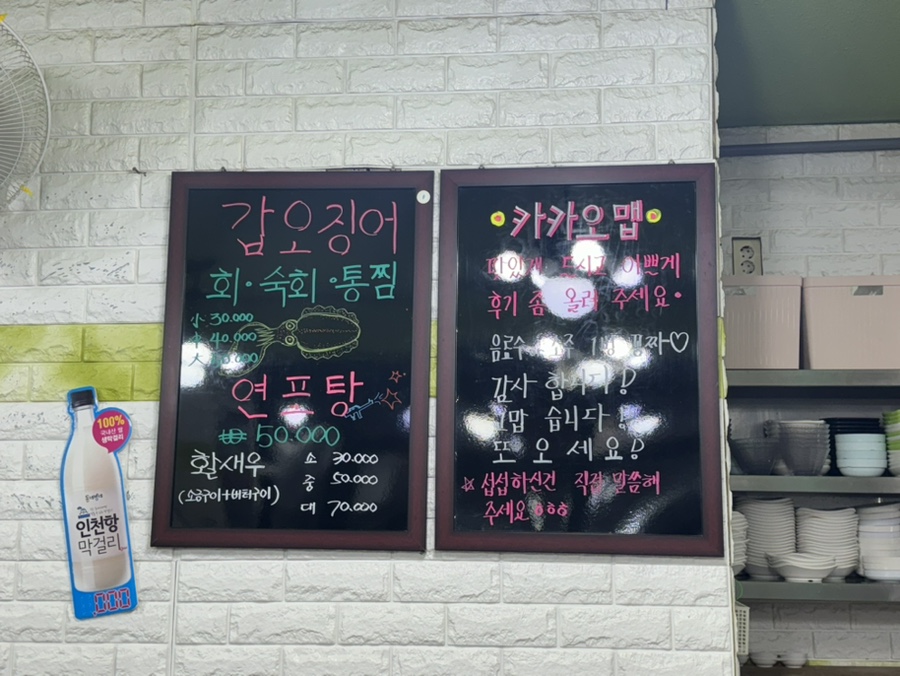 갑오징어
회·숙회·통찜
小 30.000
中 40.000
大
연프탕
中 50.000
활새우
소 30.000
중 50.000
(소금구이+버터구이)
대 70.000
카카오맵
맛있게 드시고 이쁘게
후기 좀 올려 주세요.
음료수 소주 1병 공짜♡
감사 합니다!
고맙 습니다!
또 오 세요!
☆ 섭섭하신건 직접 말씀해
주세요
100%
국내산 쌀
생막걸리
인천항
막걸리
,000